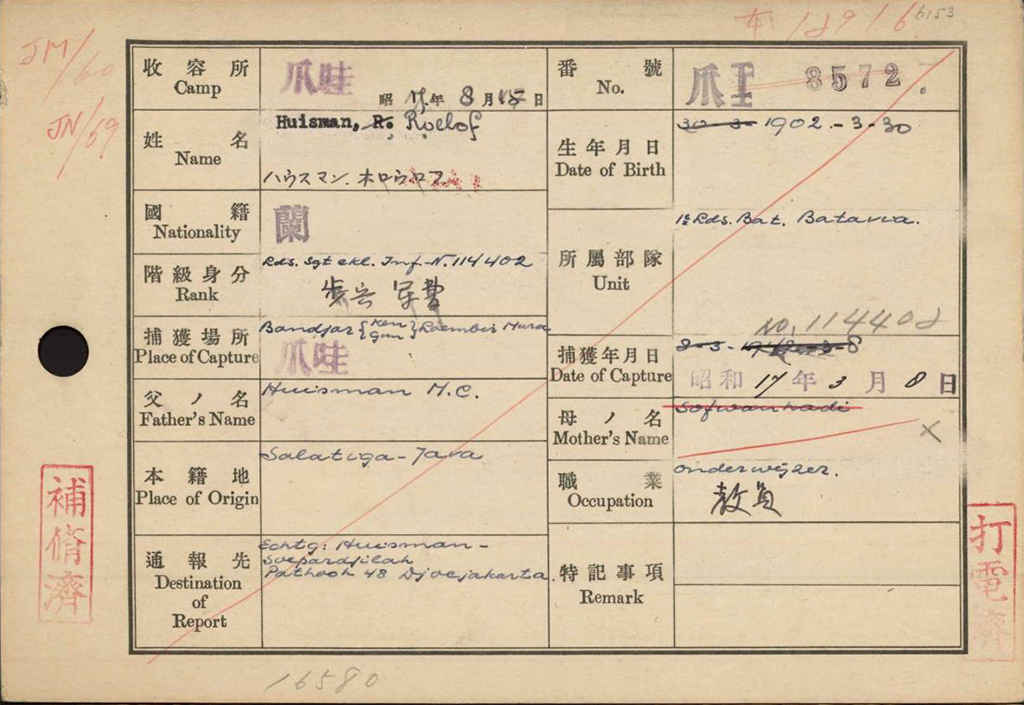 JM/60
JN/59
12916
6153
收容所
Camp
爪哇
昭 17年 8月15日
番號
No.
爪I 8572.
姓名
Name
Huisman, R. Roelof
ハウスマン. ホロウロフ
生年月日
Date of Birth
30-3-1902.-3-30
國籍
Nationality
蘭
階級身分
Rank
Lds. Sgt ekl. Inf. N. 114402
歩兵 軍曹
所屬部隊
Unit
1e Lds. Bat. Batavia.
No. 114402
捕獲場所
Place of Capture
Bandjar
爪哇
捕獲年月日
Date of Capture
8-3-
昭和17年3月8日
父ノ名
Father's Name
Huisman M.C.
母ノ名
Mother's Name
Sofwanhadi
×
本籍地
Place of Origin
Salatiga-Java
職業
Occupation
onderwijzer.
教員
通報先
Destination
of
Report
Echtg: Huisman-
Soepardjilah
Pathook 48 Djocjakarta.
特記事項
Remark
補脩濟
打電濟
16580